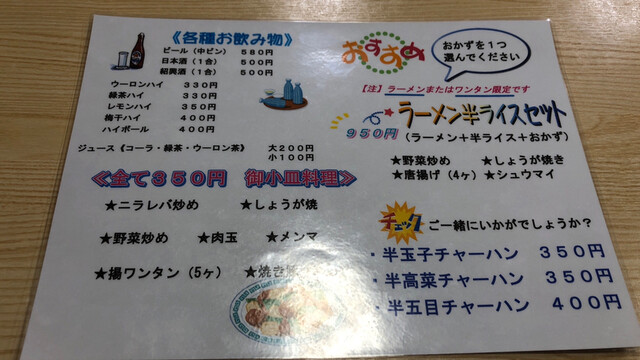 《各種お飲み物》
ビール(中ビン) 580円
日本酒(1合) 500円
紹興酒(1合) 500円
ウーロンハイ 330円
緑茶ハイ 330円
レモンハイ 350円
梅干ハイ 400円
ハイボール 400円
ジュース《コーラ・緑茶・ウーロン茶》 大200円
小100円
≪全て350円 御小皿料理≫
★ニラレバ炒め ★しょうが焼
★野菜炒め ★肉玉 ★メンマ
★揚ワンタン(5ヶ) ★焼き豚
おすすめ
おかずを1つ
選んでください
【注】ラーメンまたはワンタン限定です
ラーメン半ライスセット
950円
(ラーメン+半ライス+おかず)
★野菜炒め ★しょうが焼き
★唐揚げ(4ヶ) ★シュウマイ
チェック ご一緒にいかがでしょうか?
・半玉子チャーハン 350円
・半高菜チャーハン 350円
・半五目チャーハン 400円